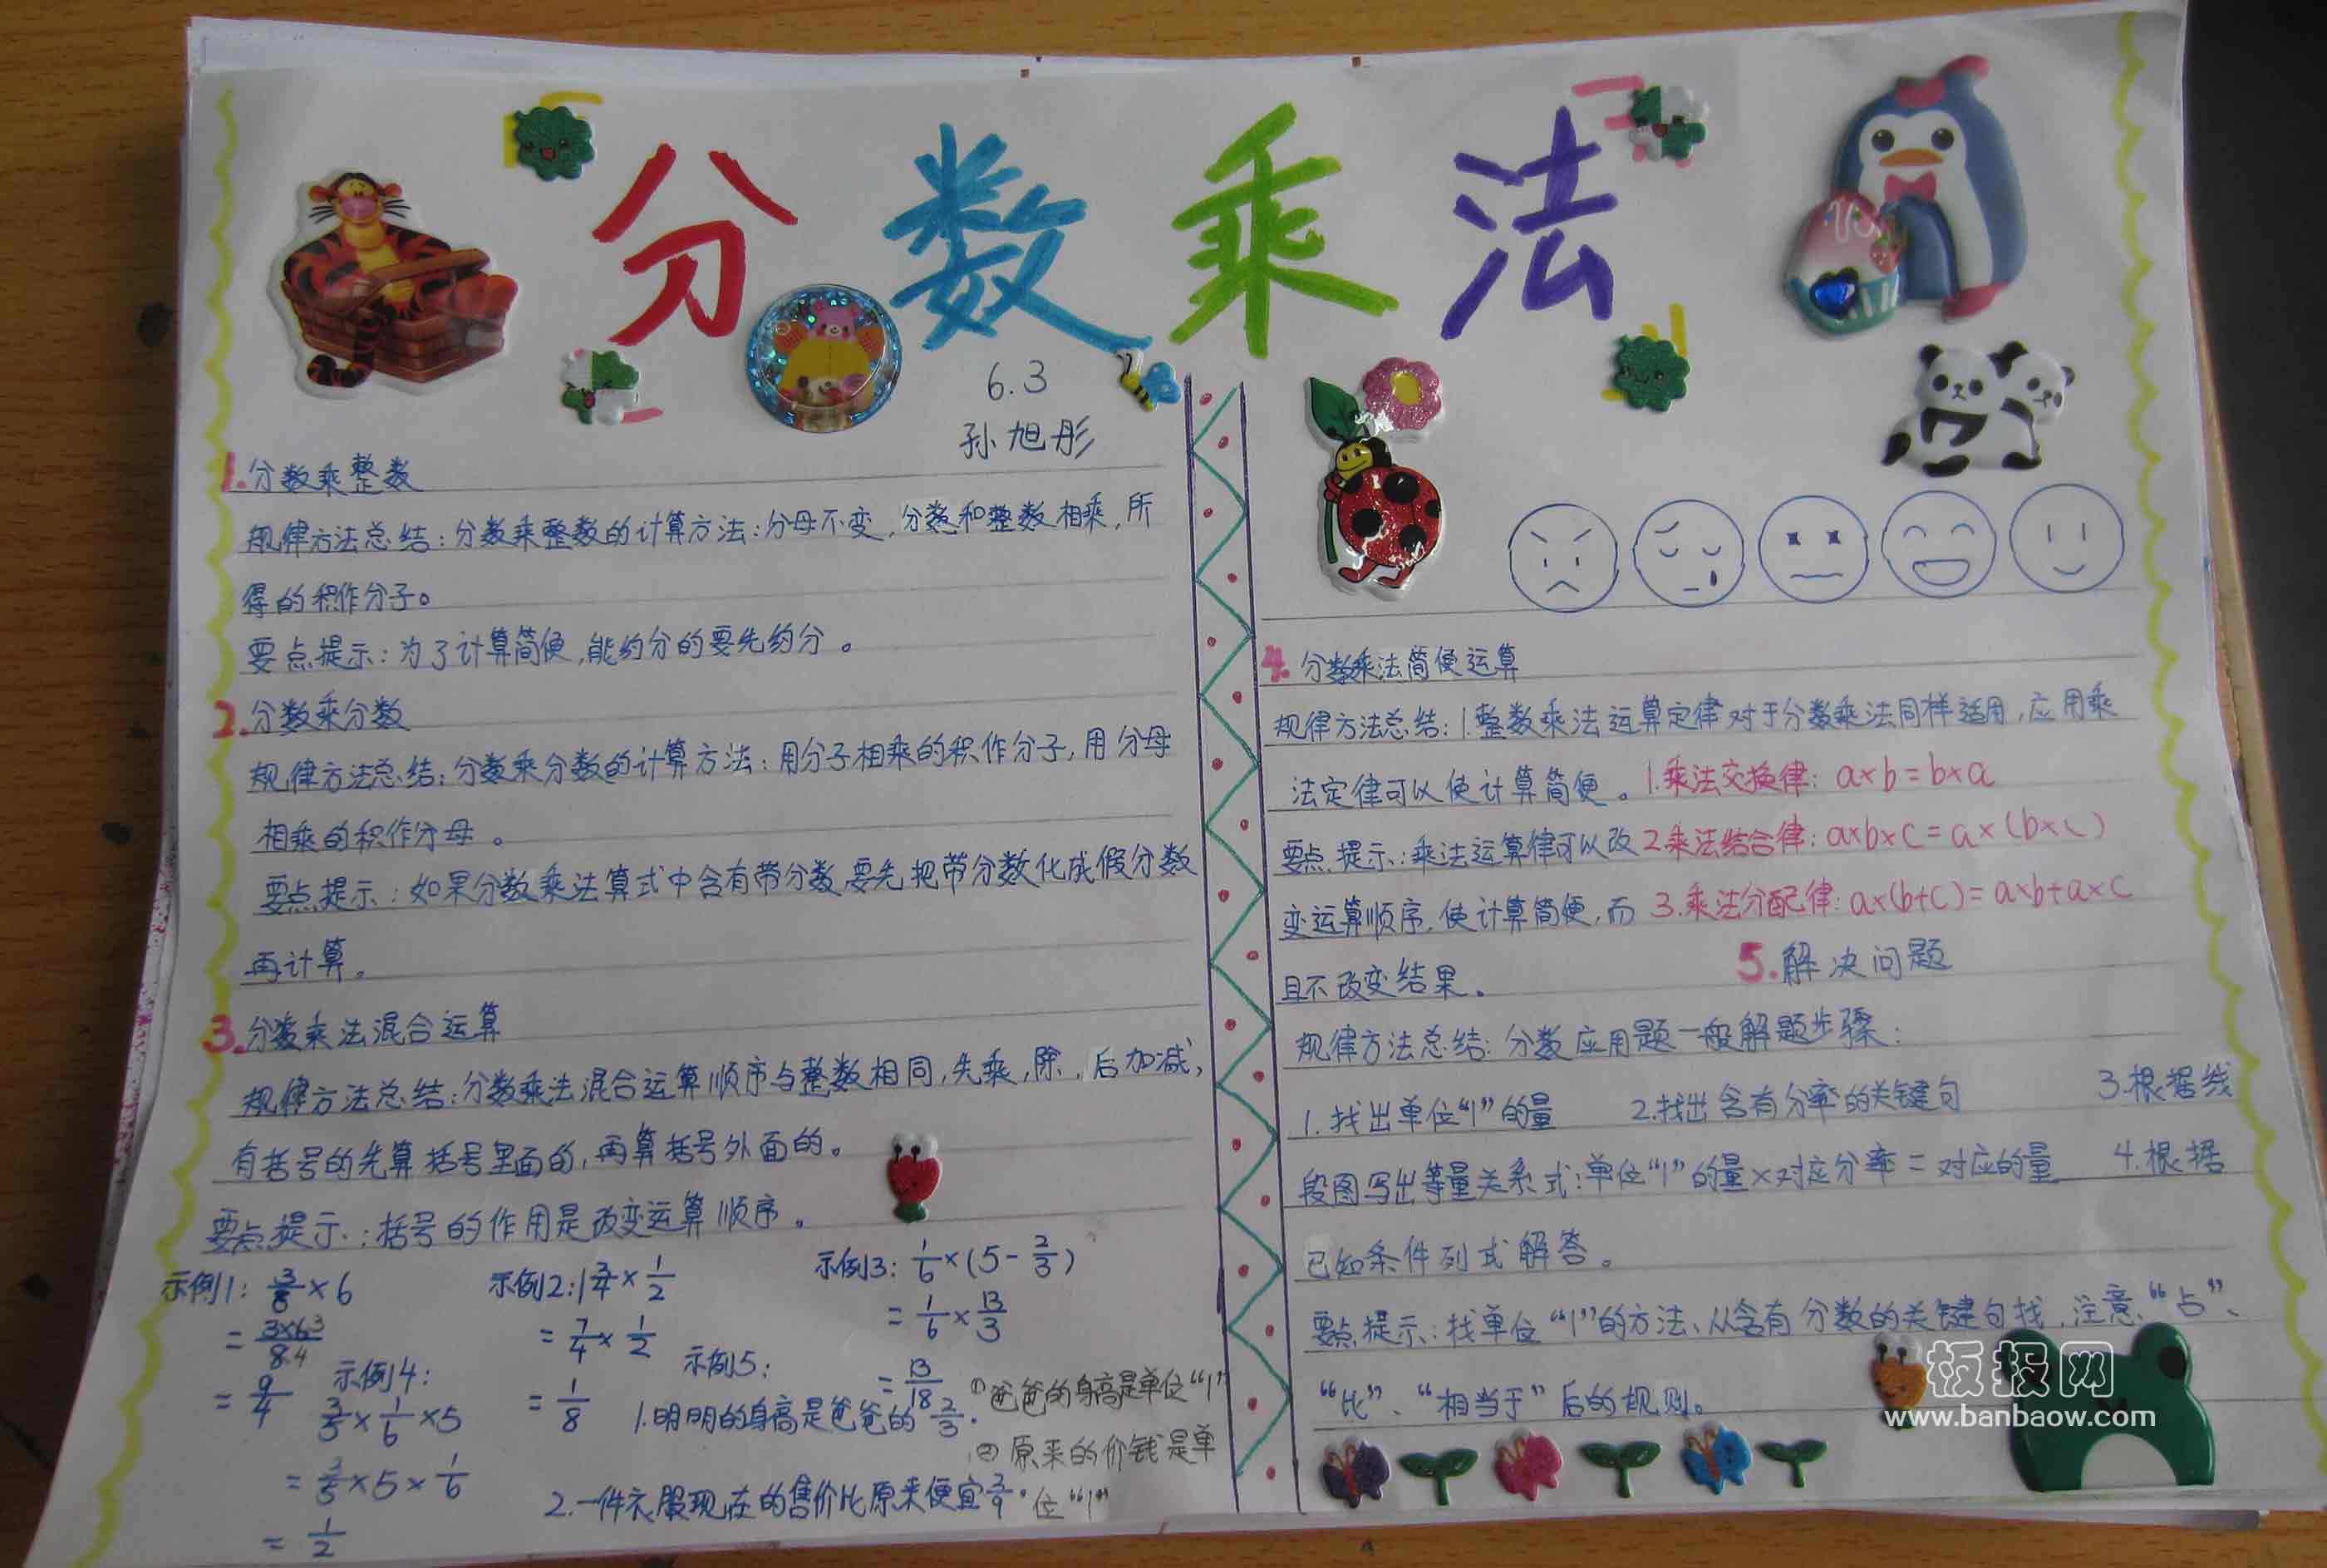 分数乘法
6.3
孙旭彤
1.分数乘整数
规律方法总结:分数乘整数的计算方法:分母不变,分数和整数相乘,所
得的积作分子。
要点提示:为了计算简便,能约分的要先约分。
2.分数乘分数
规律方法总结:分数乘分数的计算方法:用分子相乘的积作分子,用分母
相乘的积作分母。
要点提示:如果分数乘法算式中含有带分数,要先把带分数化成假分数
再计算。
3.分数乘法混合运算
规律方法总结:分数乘法混合运算顺序与整数相同,先乘,除,后加减,
有括号的先算括号里面的,再算括号外面的。
要点提示:括号的作用是改变运算顺序。
示例1: 3/8×6
= 3×6 3/8 4
= 9/4
示例2: 1 3/4×1/2
= 7/4×1/2
= 1/8
示例3: 1/6×(5-2/3)
= 1/6×13/3
= 13/18
示例4:
3/5×1/6×5
= 3/5×5×1/6
= 1/2
示例5:
1.明明的身高是爸爸的2/3.
①爸爸的身高是单位“1”
2.一件衣服现在的售价比原来便宜
②原来的价钱是单
位“1”
4.分数乘法简便运算
规律方法总结:1.整数乘法运算定律对于分数乘法同样适用,应用乘
法定律可以使计算简便。
1.乘法交换律: a×b=b×a
要点提示:乘法运算律可以改
2.乘法结合律: a×b×c=a×(b×c)
变运算顺序,使计算简便,而
3.乘法分配律: a×(b+c)=a×b+a×c
且不改变结果。
5.解决问题
规律方法总结:分数应用题一般解题步骤:
1.找出单位“1”的量 2.找出含有分率的关键句 3.根据线
段图写出等量关系式:单位“1”的量×对应分率=对应的量 4.根据
已知条件列式解答。
要点提示:找单位“1”的方法、从含有分数的关键句找,注意、“占”、
“比”、“相当于”后的规则。
板报网
www.banbaow.com